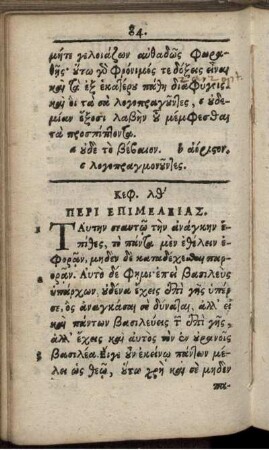 84.
μήτε γελοιάζων αὐθαδῶς φωρα-
θῇς· οὕτω γὸ φρόνιμός τε δόξεις εἶναι
καὶ τὰ ἐξ ἑκατέρου πάθη διαφύγῃς
καὶ οἱ τὰ σὰ λογοπραγοῦντες, ς οὐδε-
μίαν ἕξουσι λαβὴν οὗ μέμφεσθαι
τὰ προσπίπτοντα.
ς οὐδὲ τὸ βέβαιον.
ς λογοπραγμονοῦντες.
Κεφ. λθ'
ΠΕΡΙ ΕΠΙΜΕΛΕΙΑΣ.
Ταύτην σαυτῷ τὴν ἀνάγκην ἐ-
πίθες, τὸ πάντα μὲν ἐθέλειν ἐ-
φορᾶν, μηδὲν δὲ καταδέχεσθαι παρ-
ορᾶν. Αὐτὸ δέ φημι ἐπεὶ βασιλεὺς
ὑπάρχων οὐδένα ἔχεις ἐπὶ γῆς ὑπέρ
σε, ὃς ἀναγκάσαι σε δύναται, ἀλλ' εἰ
καὶ πάντων βασιλεύεις τ ἐπὶ γῆς,
ἀλλ' ἔχεις καὶ αὐτὸς τὸν ἐν οὐρανοῖς
βασιλέα. Εἴγε οὖν ἐκείνῳ πάντων μέ-
λει ὡς θεῷ, οὕτω χρὴ καὶ σὲ μηδὲν
πα-